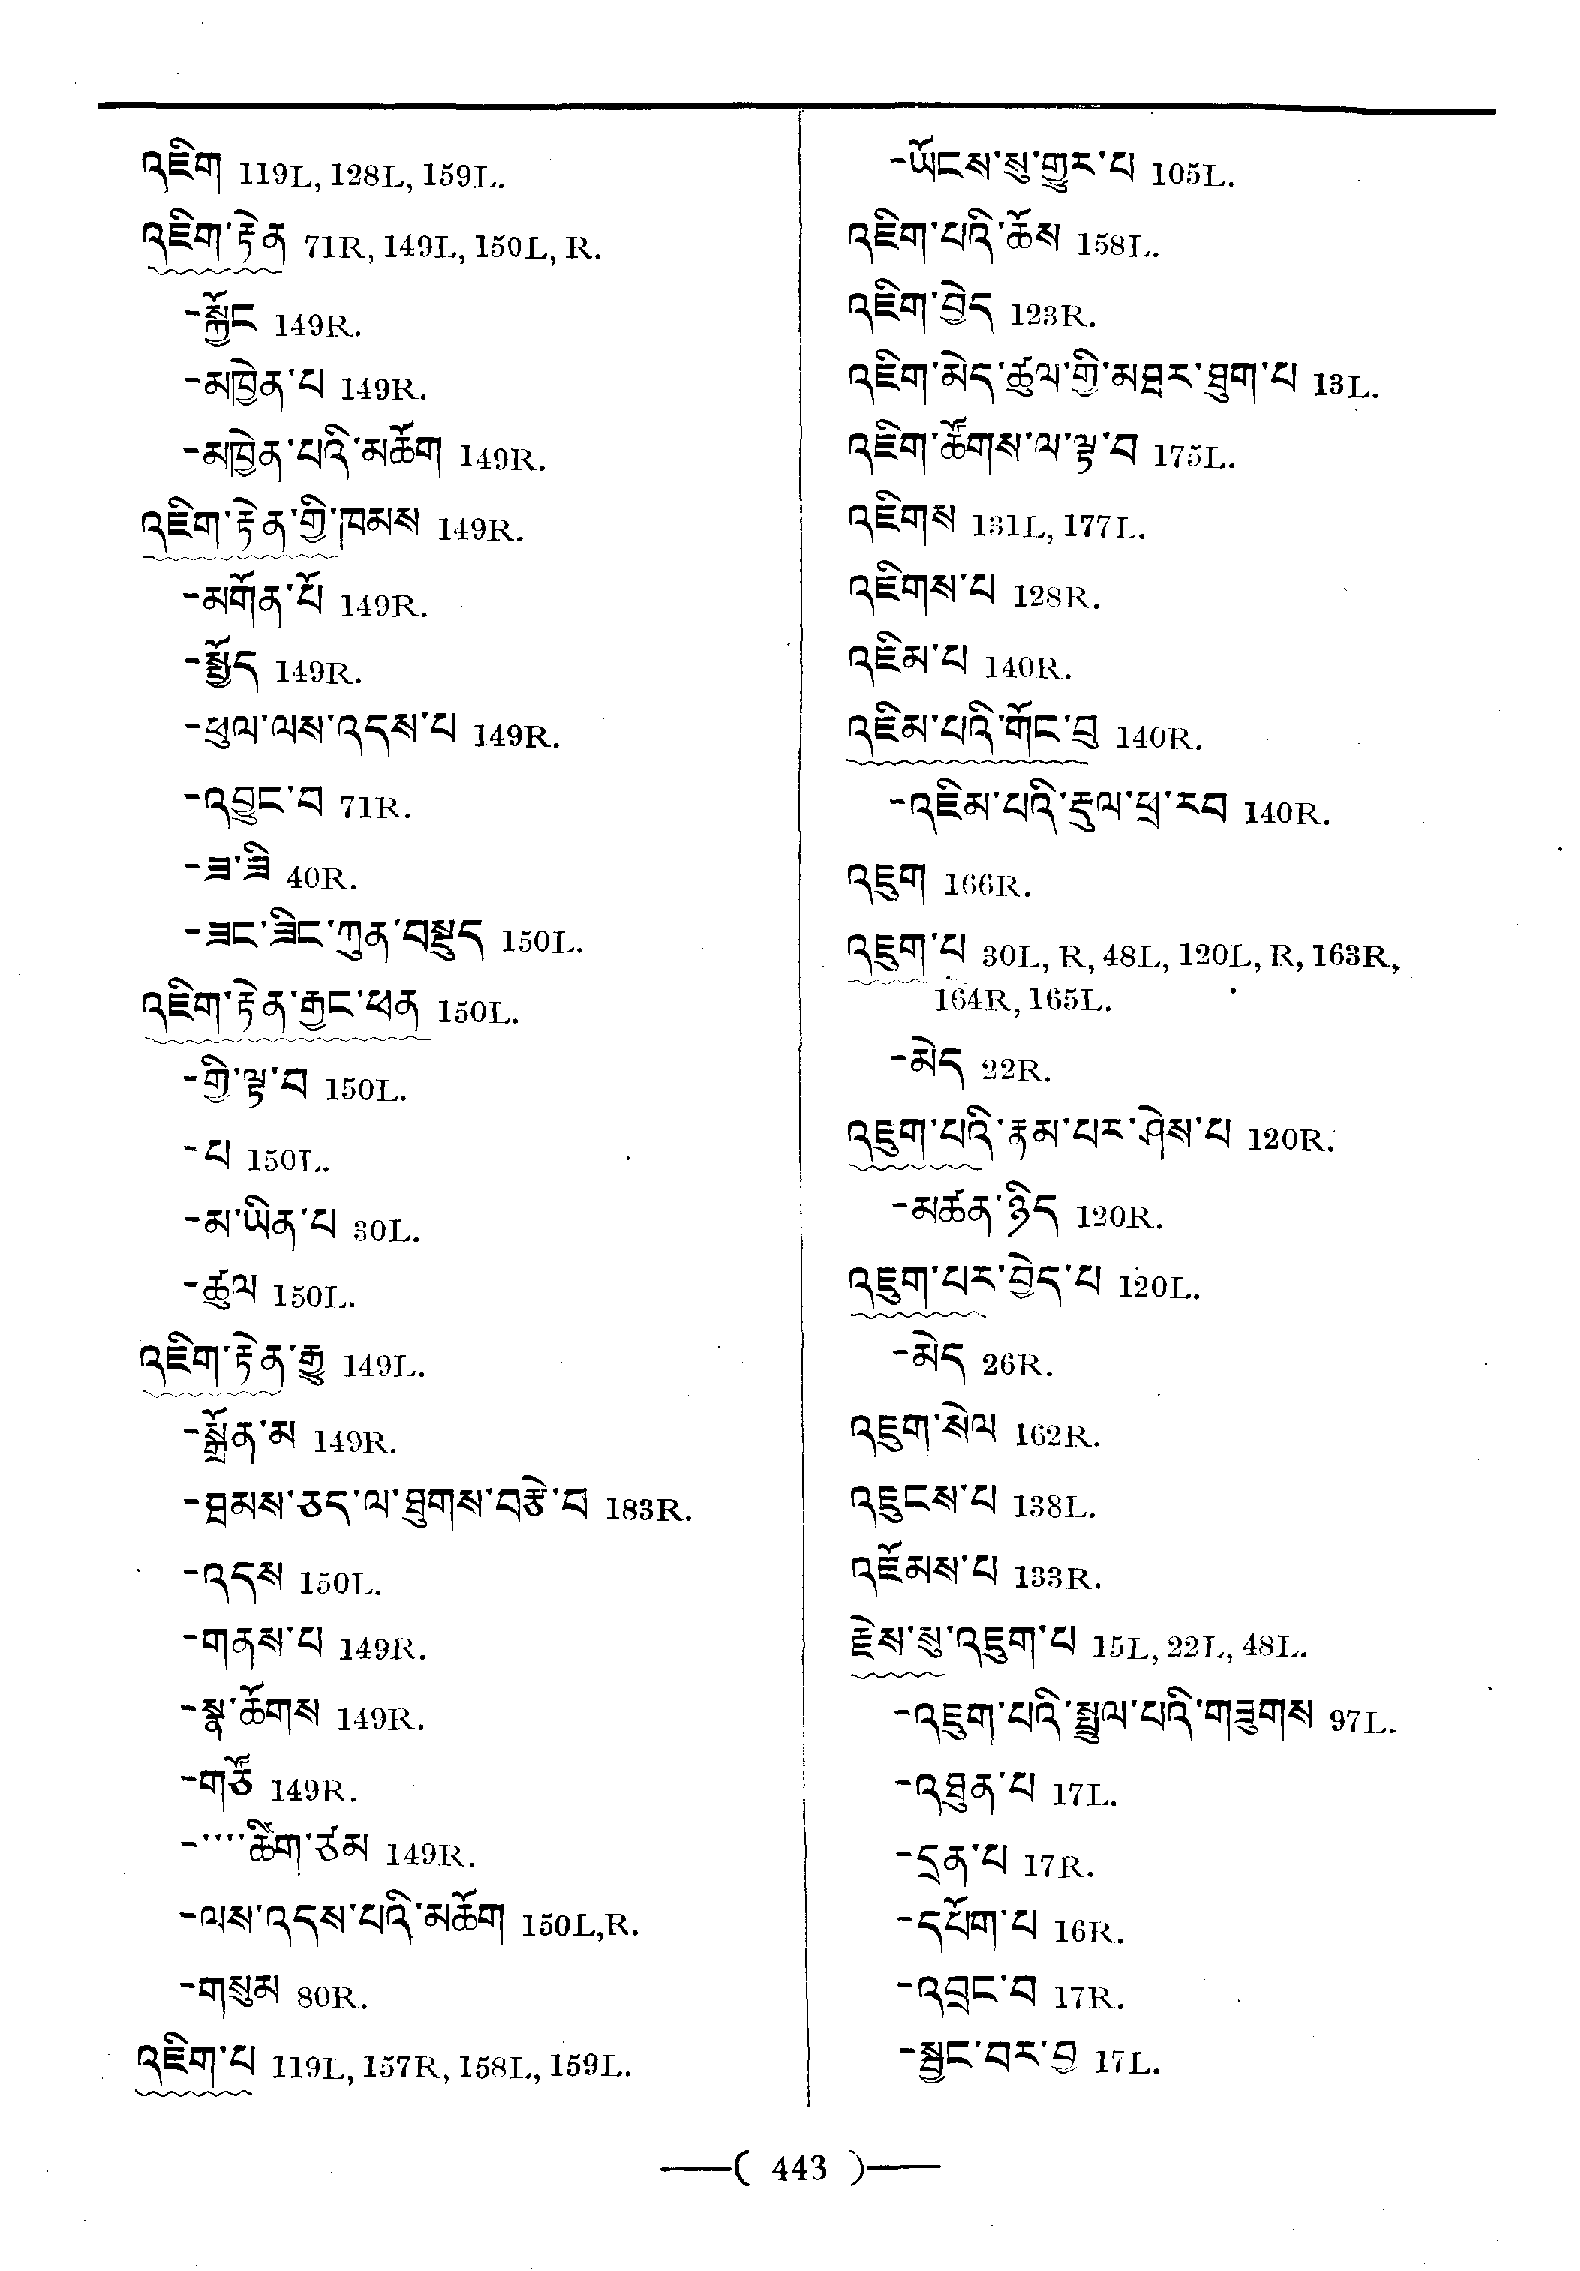 འཇིག 119L, 128L, 159L.
འཇིག་རྟེན 71R, 149L, 150L, R.
-སྐྱོང 149R.
-མཁྱེན་པ 149R.
-མཁྱེན་པའི་མཆོག 149R.
འཇིག་རྟེན་གྱི་ཁམས 149R.
-མགོན་པོ 149R.
-སྤྱོད 149R.
-ཕུལ་ལས་འདས་པ 149R.
-འབྱུང་བ 71R.
-ཟ་ཟི 40R.
-ཟང་ཟིང་ཀུན་བསྡུད 150L.
འཇིག་རྟེན་རྒྱང་ཕན 150L.
-གྱི་ལྟ་བ 150L.
-པ 150L.
-མ་ཡིན་པ 30L.
-ཚུལ 150L.
འཇིག་རྟེན་རྒྱུ 149L.
-སྒྲོན་མ 149R.
-ཐམས་ཅད་ལ་ཐུགས་བརྩེ་བ 183R.
-འདས 150L.
-གནས་པ 149R.
-སྣ་ཚོགས 149R.
-གཙོ 149R.
-་་་་ཚིག་ཙམ 149R.
-ལས་འདས་པའི་མཆོག 150L,R.
-གསུམ 80R.
འཇིག་པ 119L, 157R, 158L, 159L.
-ཡོངས་སུ་གྱུར་པ 105L.
འཇིག་པའི་ཆོས 158L.
འཇིག་བྱེད 123R.
འཇིག་མེད་ཚུལ་གྱི་མཐར་ཐུག་པ 13L.
འཇིག་ཚོགས་ལ་ལྟ་བ 175L.
འཇིགས 131L, 177L.
འཇིགས་པ 128R.
འཇིམ་པ 140R.
འཇིམ་པའི་གོང་བུ 140R.
-འཇིམ་པའི་རྡུལ་ཕྲ་རབ 140R.
འཇུག 166R.
འཇུག་པ 30L, R, 48L, 120L, R, 163R,
164R, 165L.
-མེད 22R.
འཇུག་པའི་རྣམ་པར་ཤེས་པ 120R.
-མཚན་ཉིད 120R.
འཇུག་པར་བྱེད་པ 120L.
-མེད 26R.
འཇུག་སེལ 162R.
འཇུངས་པ 138L.
འཇོམས་པ 133R.
རྗེས་སུ་འཇུག་པ 15L, 22L, 48L.
-འཇུག་པའི་སྤྲུལ་པའི་གཟུགས 97L.
-འཐུན་པ 17L.
-དྲན་པ 17R.
-དཔོག་པ 16R.
-འབྲང་བ 17R.
-སྦྱང་བར་བྱ 17L.
—( 443 )—